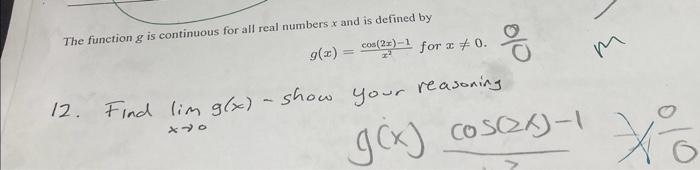 The function g is continuous for all real numbers x and is defined by
g(x) = cos(2x)−1 / x² for x ≠ 0. 0/0
m
12. Find lim x→0 g(x) - show your reasoning
g(x) cos(2x)-1 0/0